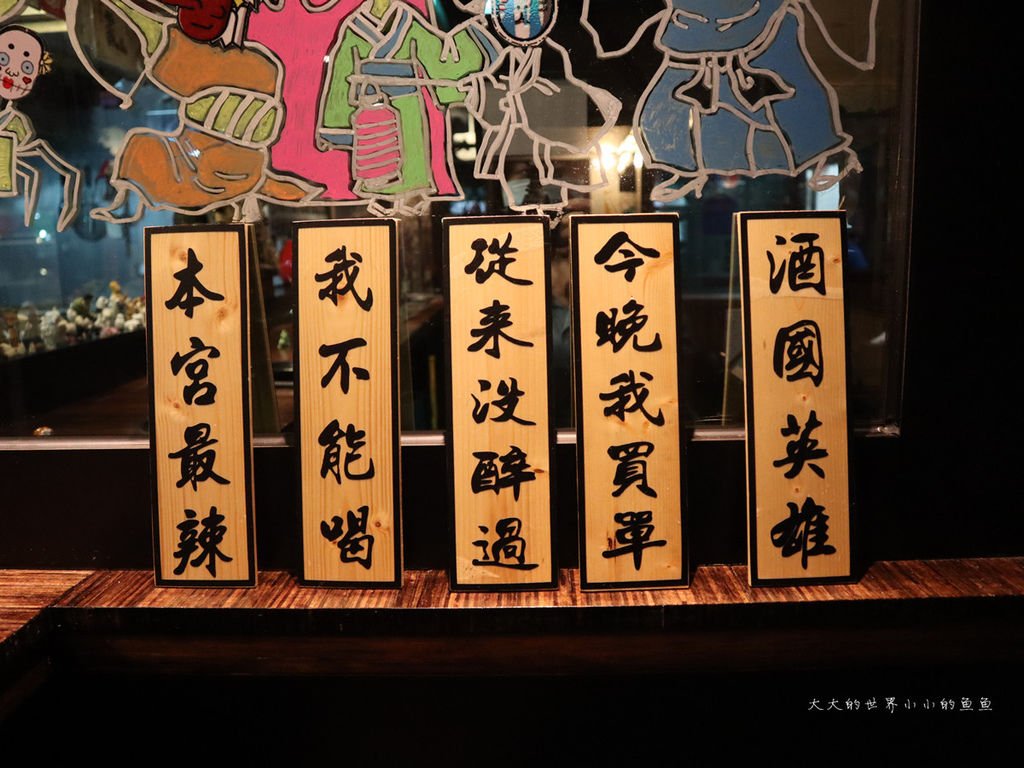 酒國英雄
今晚我買單
從来沒醉過
我不能喝
本宮最辣
大大的世界小小的魚魚